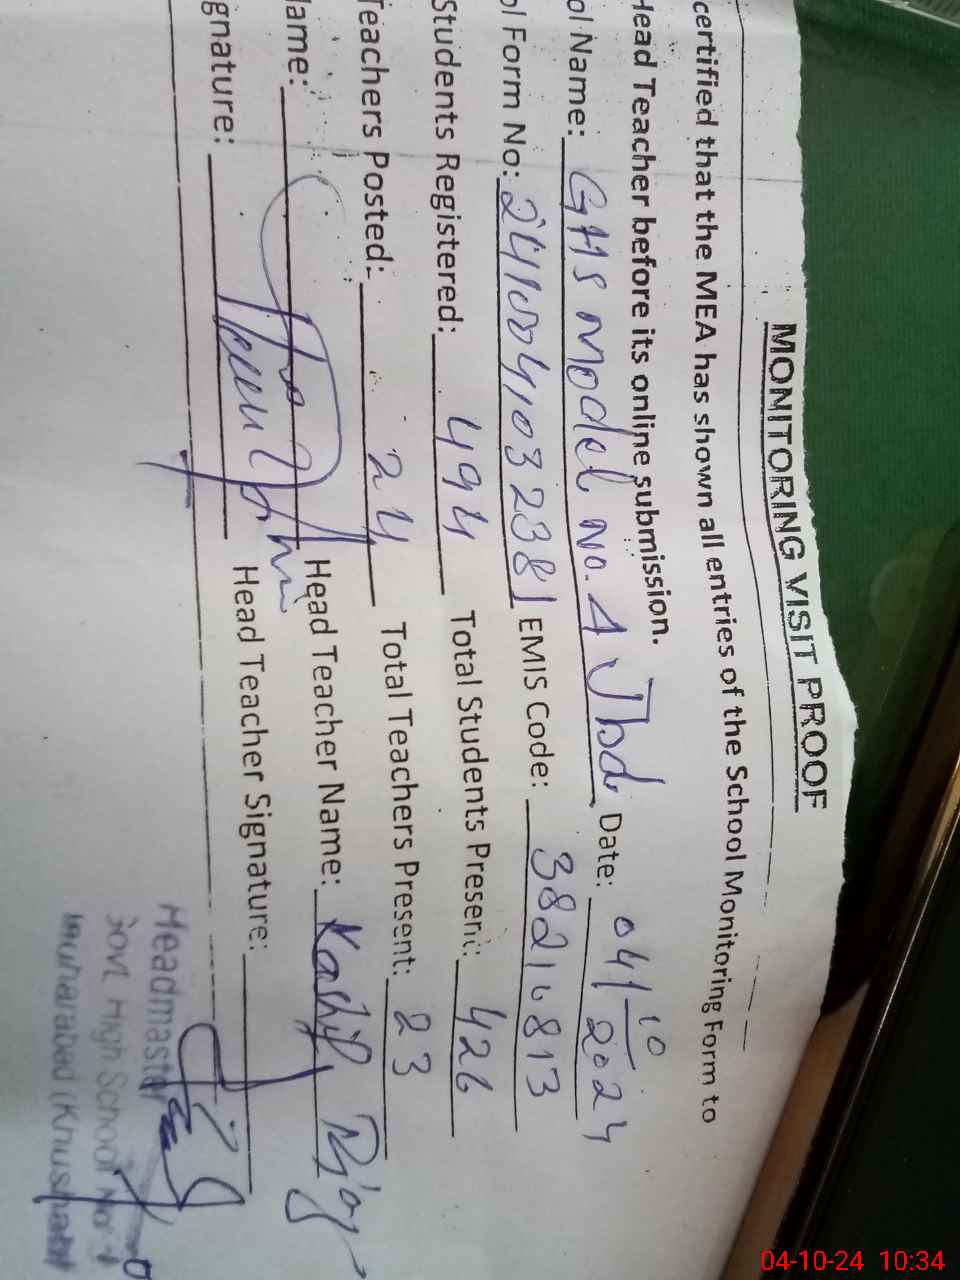 MONITORING VISIT PROOF
certified that the MEA has shown all entries of the School Monitoring Form to
Head Teacher before its online submission.
ol Name: GHS Model No. 4 Jbd Date: 04/10/2024
ol Form No: EMIS Code: 38210813
Students Registered: 494 Total Students Present: 426
Teachers Posted: 24 Total Teachers Present: 23
ame: Head Teacher Name: Kashif
ignature: Head Teacher Signature:
Headmaster
Govt. High School No 4
04-10-24 10:34